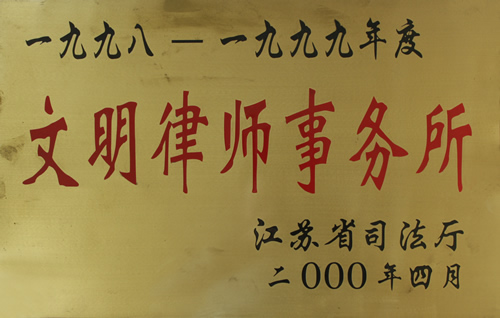 一九九八 — 一九九九年度
文明律师事务所
江苏省司法厅
二000年四月